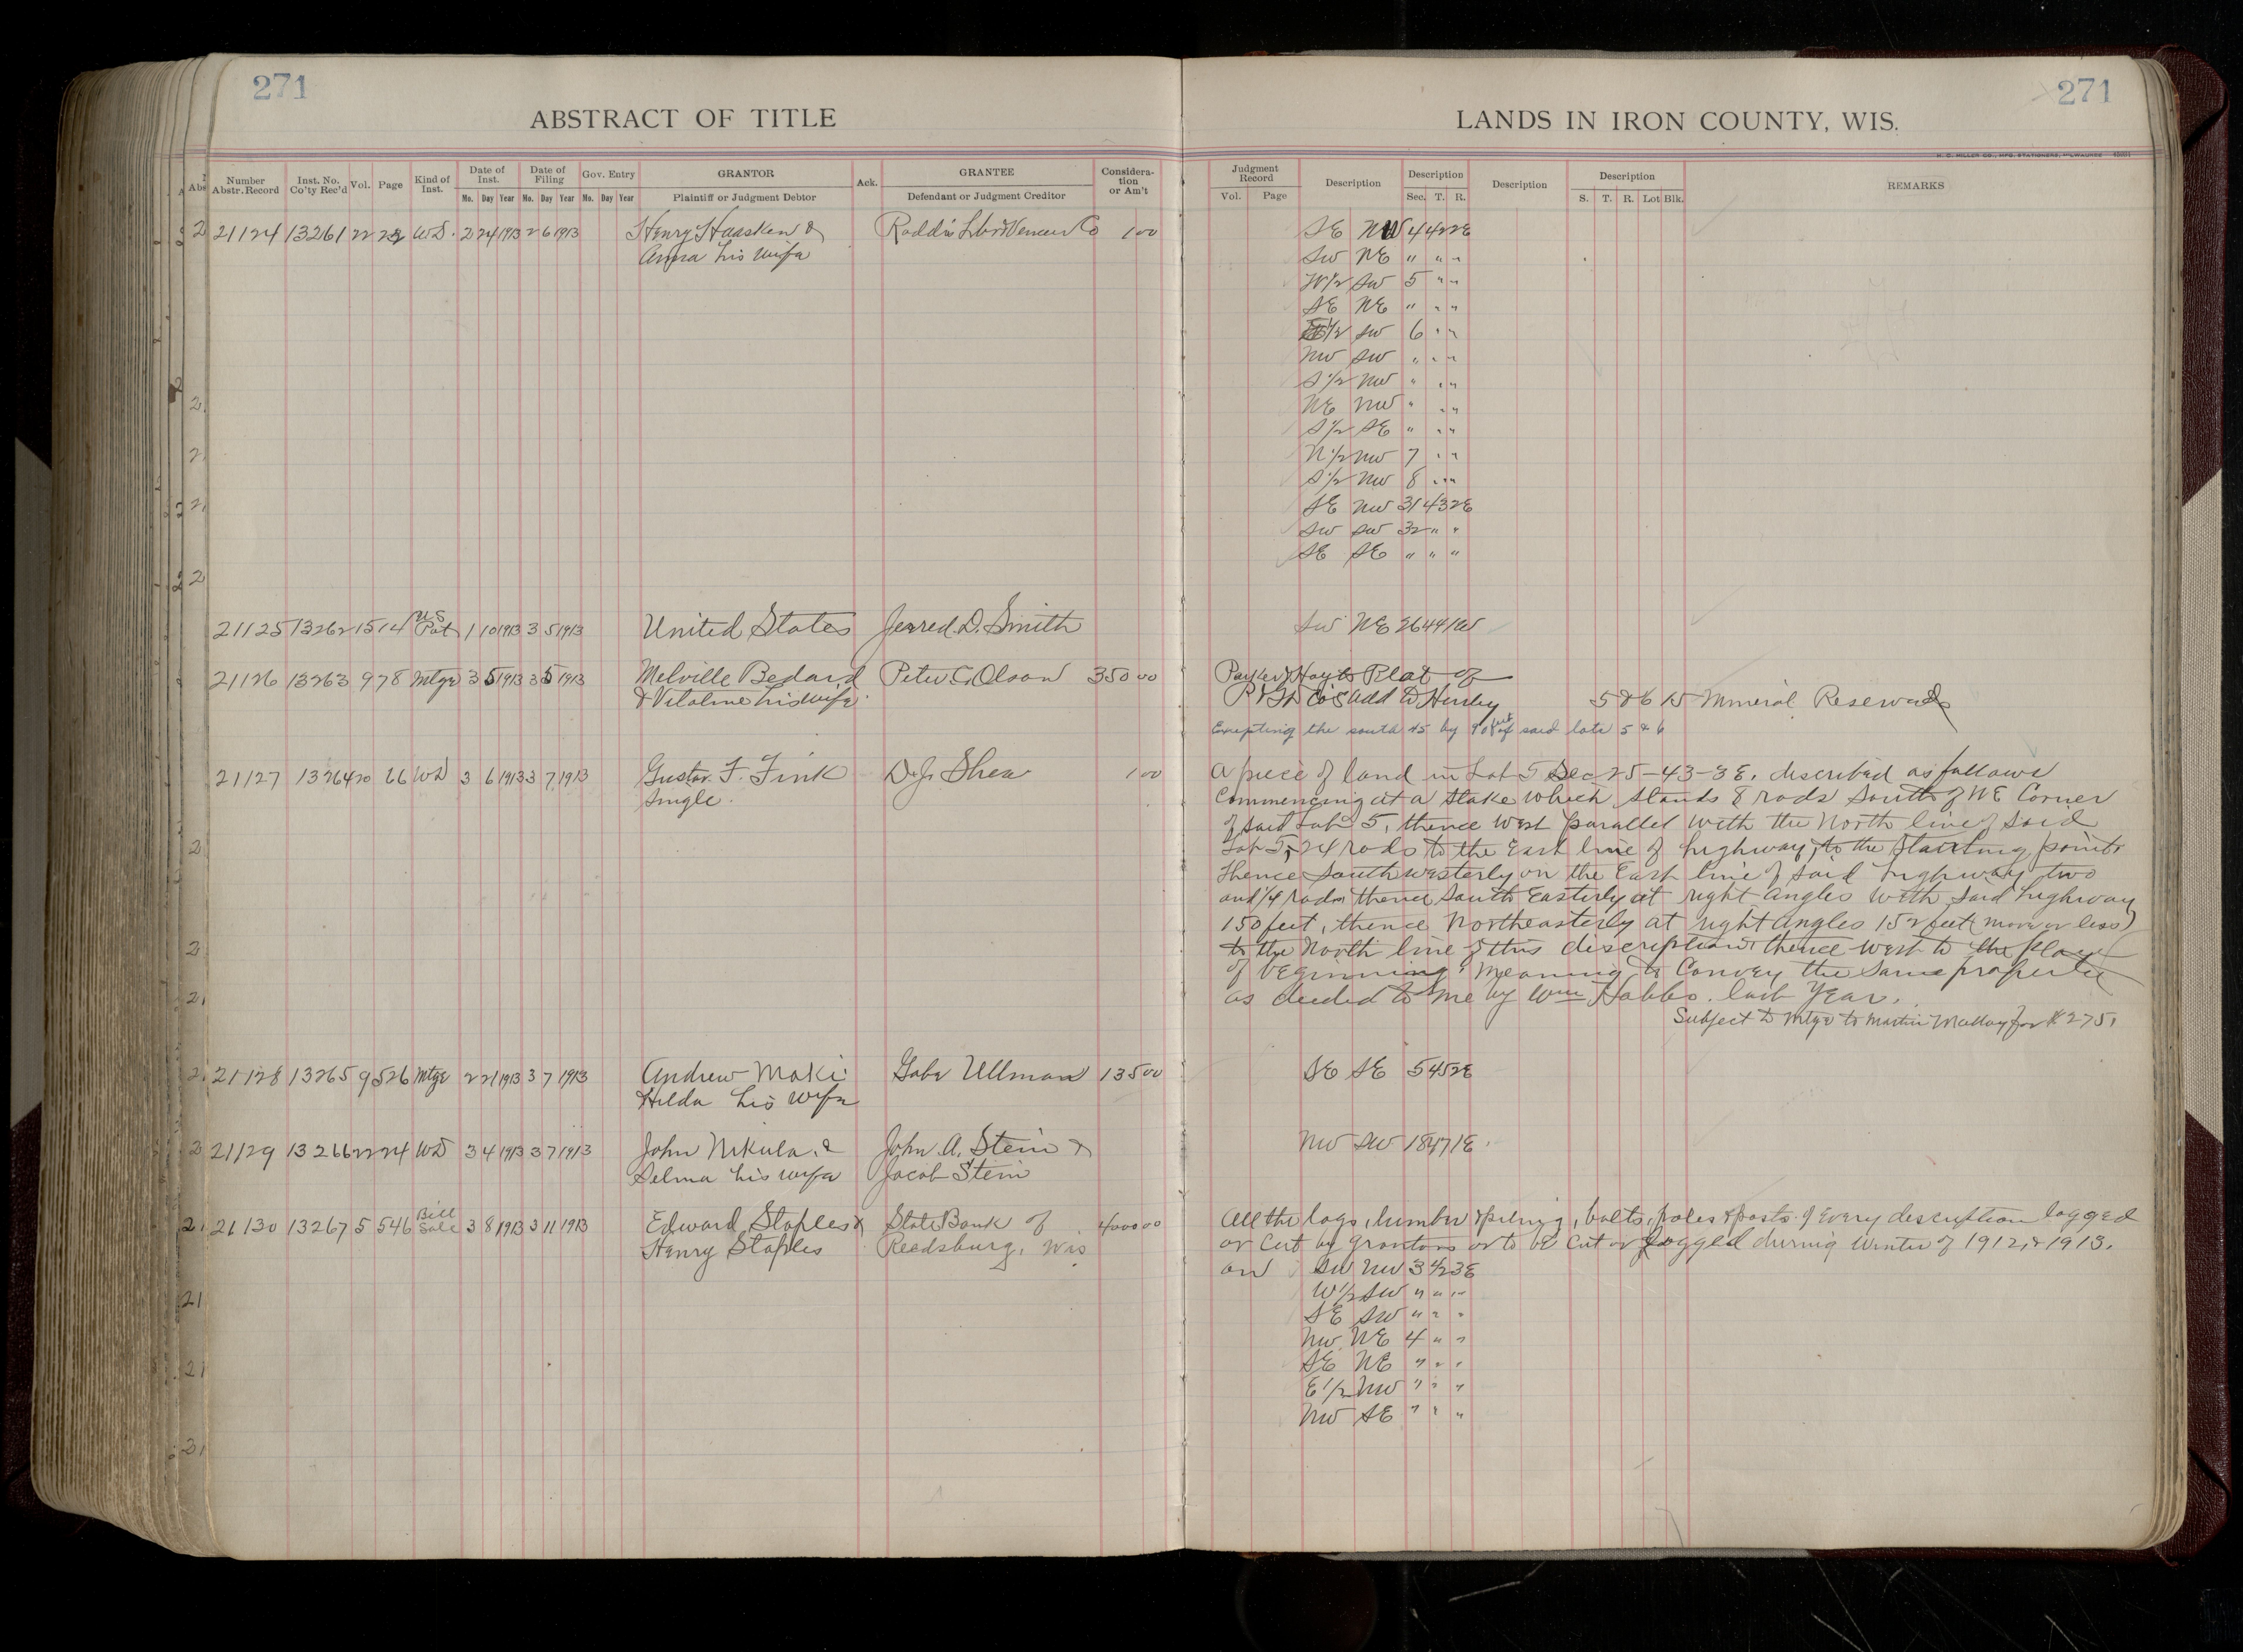 271
ABSTRACT OF TITLE
Number Abstr. Record Inst. No. Co'ty Rec'd Vol. Page Kind of Inst. Date of Inst. Date of Filing Gov. Entry GRANTOR Ack. GRANTEE Considera-tion or Am't
Mo. Day Year Mo. Day Year Mo. Day Year Plaintiff or Judgment Debtor Defendant or Judgment Creditor
21124 13261 22 WD. 2 24 1913 2 6 1913 Henry Haasken & Roddis Lbr & Veneer Co 1 00
Anna his wife
U S
21125 13262 15 14 Pat 1 10 1913 3 5 1913 United States Jerred D. Smith
21126 13263 9 78 Mtge 3 5 1913 3 5 1913 Melville Bedard Peter C. Olson 350 00
& Vitaline his wife.
21127 13264 20 66 WD 3 6 1913 3 7 1913 Gustav. F. Fink D. J. Shea 1 00
Single.
21128 13265 9 526 Mtge 2 21 1913 3 7 1913 Andrew Maki Gabe Ullman 135 00
Hilda his wife
21129 13266 22 24 WD 3 4 1913 3 7 1913 John Nikula. & John A. Stein &
Selma his wife Jacob Stein
Bill
21130 13267 5 546 Sale 3 8 1913 3 11 1913 Edward Staples & State Bank of 4000 00
Henry Staples Reedsburg, Wis
271
LANDS IN IRON COUNTY, WIS.
H. C. MILLER CO., MFG. STATIONERS, MILWAUKEE
Judgment Record Description Description Description Description REMARKS
Vol. Page Sec. T. R. S. T. R. Lot Blk.
SE NW 4 42 2E
SW NE " " "
W1/2 SW 5 " "
SE NE " " "
E1/2 SW 6 " "
NW SW " " "
S1/2 NW " " "
NE NW " " "
S1/2 SE " " "
N1/2 NW 7 " "
S1/2 NW 8 " "
SE NW 31 43 2E
SW SW 32 " "
SE SE " " "
SW NE 26 44 1W
Parker & Hoyts Plat of
Co's Add to Hurley 5 & 6 15 Mineral Reserved
Excepting the south 45 by 90 feet of said lots 5 & 6
A piece of land in Lot 5 Sec 25-43-3E. described as follows
Commencing at a stake which stands 8 rods South of NE Corner
of said Lot 5, thence West parallel with the North line of said
Lot 5, 24 rods to the East line of highway, to the starting point
thence Southwesterly on the East line of said highway two
and 1/4 rods, thence South Easterly at right angles with said highway
150 feet, thence Northeasterly at right angles 152 feet (more or less)
to the North line of this description thence West to the place
of beginning. Meaning to Convey the same property
as deeded to me by Wm Hobbs. last Year.
Subject to Mtge to Martin for $275.
SE SE 5 45 2E
NW SW 18 47 1E.
All the logs, lumber & piling, bolts, poles & posts of every description logged
or cut by grantors or to be cut or logged during Winter of 1912, & 1913.
on SW NW 3 42 3E
W1/2 SW " " "
SE SW " " "
NW NE 4 " "
SE NE " " "
E1/2 NW " " "
NW SE " " "